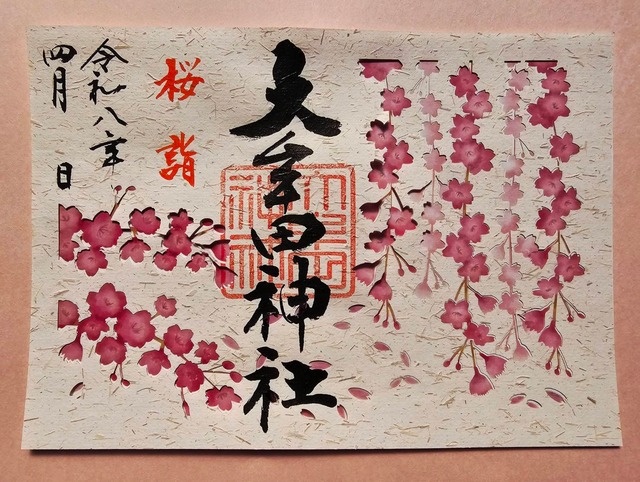 田神社
桜詣
令和八年
四月 日